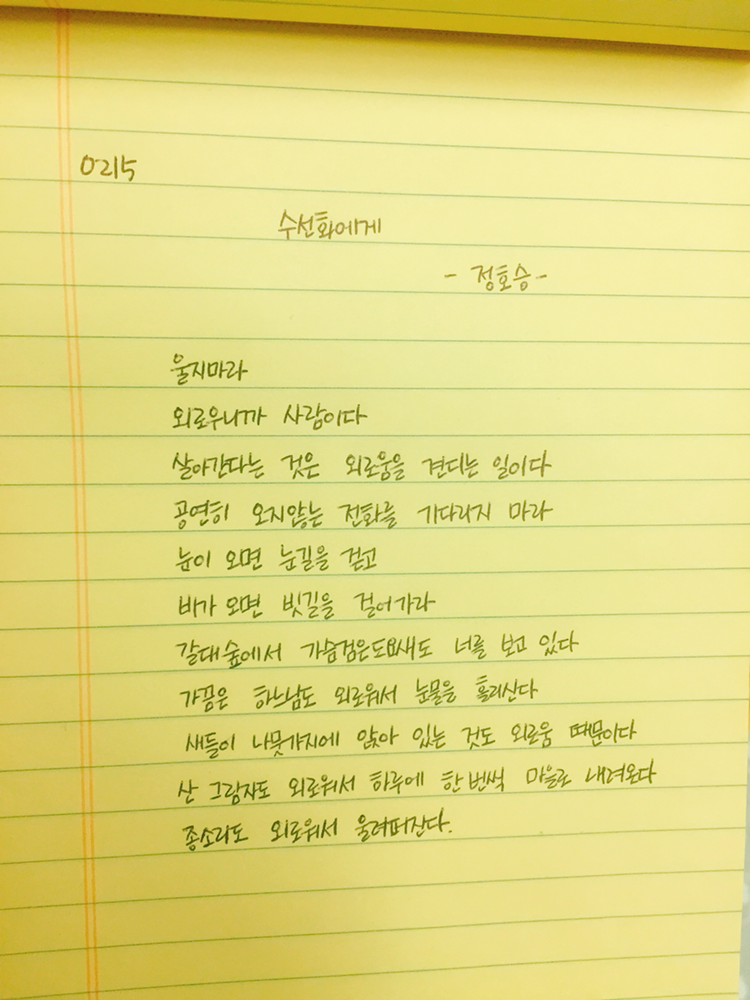 0215
수선화에게
- 정호승 -
울지마라
외로우니까 사람이다
살아간다는 것은 외로움을 견디는 일이다
공연히 오지않는 전화를 기다리지 마라
눈이 오면 눈길을 걷고
비가 오면 빗길을 걸어가라
갈대숲에서 가슴검은도요새도 너를 보고 있다
가끔은 하느님도 외로워서 눈물을 흘리신다
새들이 나뭇가지에 앉아 있는 것도 외로움 때문이다
산 그림자도 외로워서 하루에 한 번씩 마을로 내려온다
종소리도 외로워서 울려퍼진다.